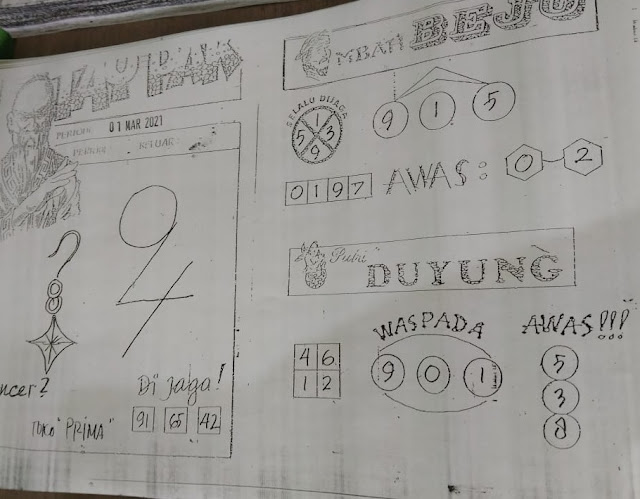 PERIODE: 01 MAR 2021
KELUAR:
94
8
ncer?
Di jaga!
TOKO "PRIMA"
91 65 42
MBAH BEJO
SELALU DIJAGA
1
5 3
9
9 1 5
0 1 9 7
AWAS: 0 2
Putri
DUYUNG
WASPADA
4 6
1 2
9 0 1
AWAS!!!
5
3
8